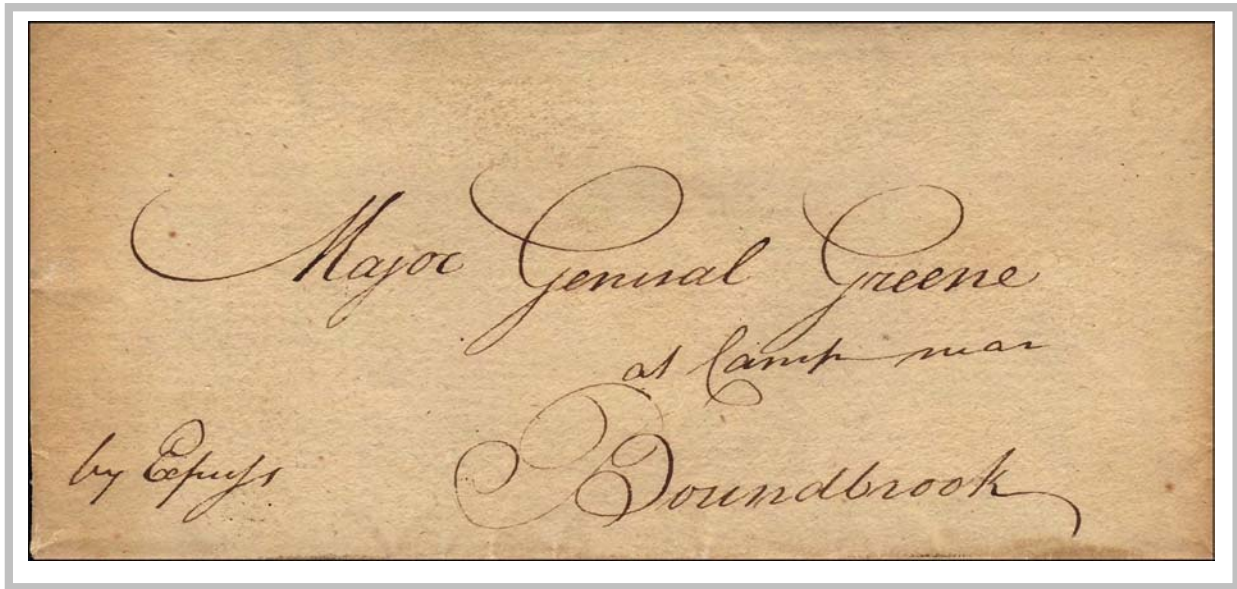 Major General Greene
at Camp near
by Express
Boundbrook